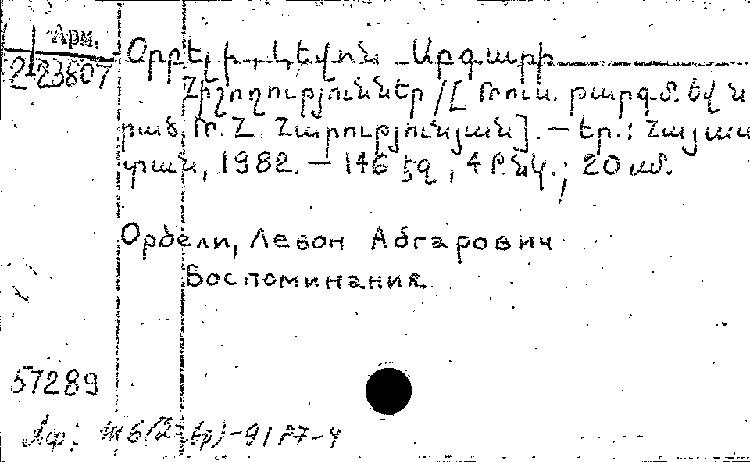 Арм.
2/23807
Օրբելի, Լևոն Աբգարի
Հիշողություններ /[Ռուս. թարգմ. եվ ն
րած, Ռ. Հ. Հարությունյան]. — Եր.: Հայաս
տան, 1982. — 146 էջ, 4 թ. նկ.; 20 սմ.
Орбели, Левон Абгарович
Воспоминания.
57289